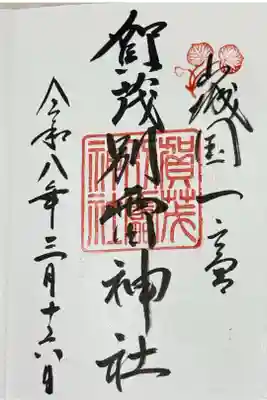 山城国一宮
賀茂別雷神社
令和八年三月十六日
賀茂
別雷
神社